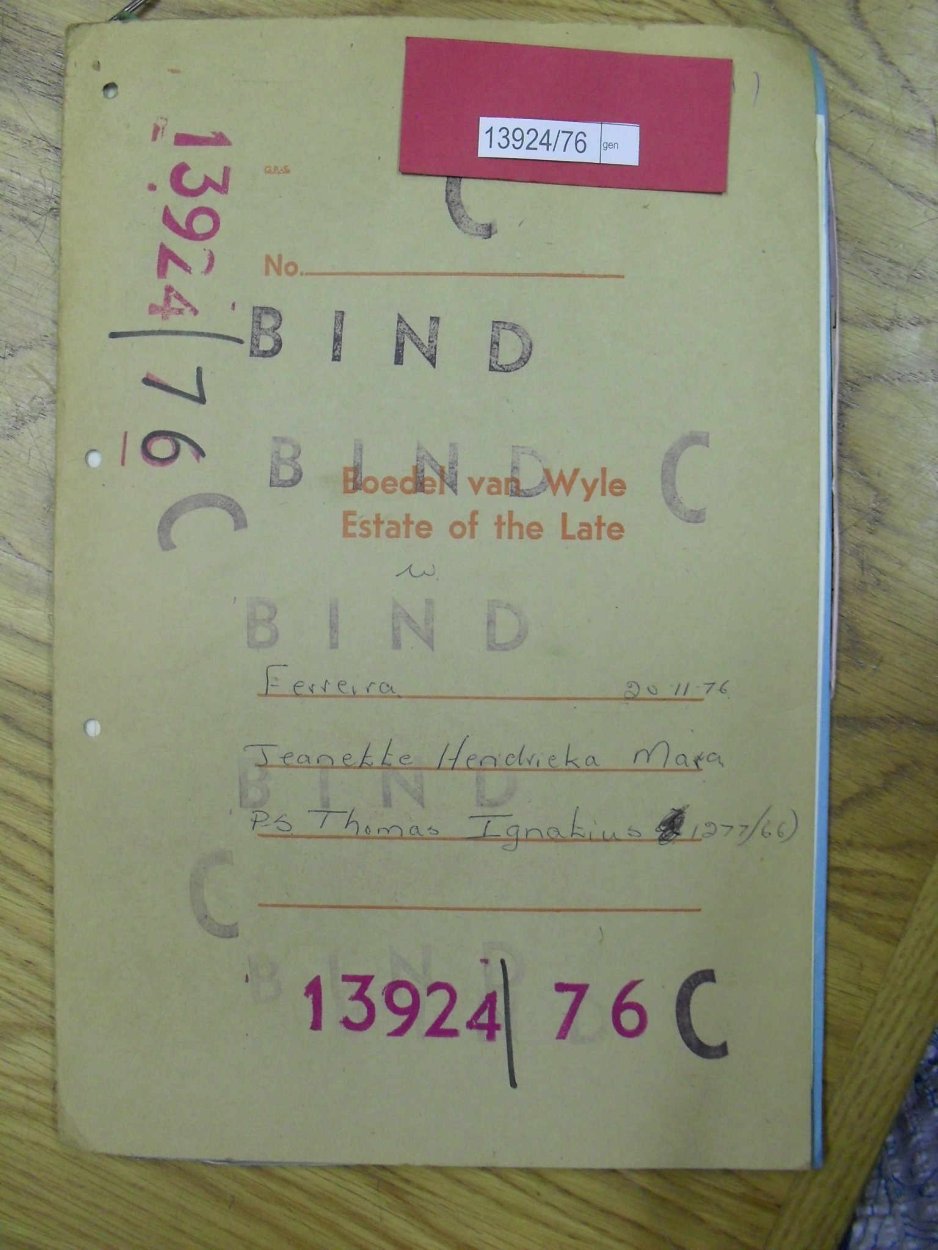 13924/76 gen
C
13924/76 C
G.P.-S.
No.
BIND
BIND C
Boedel van Wyle
Estate of the Late
BIND
Ferreira 20·11·76
BIND
Jeanette Hendrieka Mara
PS Thomas Ignatius 1277/66)
C
BIND
13924/76 C